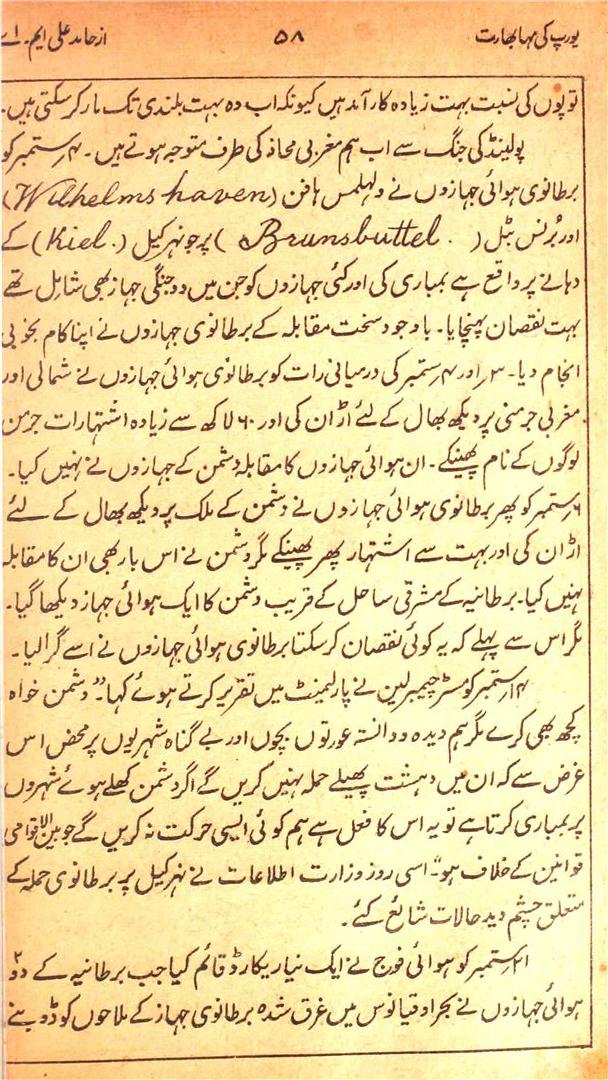 یورپ کی مہا بھارت ۵۸ از حامد علی ایم۔ اے
توپوں کی نسبت بہت زیادہ کارآمد ہیں کیونکہ اب وہ بہت بلندی تک مار کر سکتی ہیں۔
پولینڈ کی جنگ سے اب ہم مغربی محاذ کی طرف متوجہ ہوتے ہیں۔ ۴ ستمبر کو
برطانوی ہوائی جہازوں نے ولہلمس ہافن (Wilhelmshaven)
اور بُرنس بٹل (Brunsbuttel.) پر جو نہر کیل (Kiel.) کے
دہانے پر واقع ہے بمباری کی اور کئی جہازوں کو جن میں دو جنگی جہاز بھی شامل تھے
بہت نقصان پہنچایا۔ باوجود سخت مقابلہ کے برطانوی جہازوں نے اپنا کام بخوبی
انجام دیا۔ ۳ اور ۴ ستمبر کی درمیانی رات کو برطانوی ہوائی جہازوں نے شمالی اور
مغربی جرمنی پر دیکھ بھال کے لئے اڑان کی اور ۶۰ لاکھ سے زیادہ اشتہارات جرمن
لوگوں کے نام پھینکے۔ ان ہوائی جہازوں کا مقابلہ دشمن کے جہازوں نے نہیں کیا۔
۶ ستمبر کو پھر برطانوی ہوائی جہازوں نے دشمن کے ملک پر دیکھ بھال کے لئے
اڑان کی اور بہت سے اشتہار پھر پھینکے مگر دشمن نے اس بار بھی ان کا مقابلہ
نہیں کیا۔ برطانیہ کے مشرقی ساحل کے قریب دشمن کا ایک ہوائی جہاز دیکھا گیا۔
مگر اس سے پہلے کہ یہ کوئی نقصان کر سکتا برطانوی ہوائی جہازوں نے اسے گرا لیا۔
۱۴ ستمبر کو مسٹر چیمبرلین نے پارلیمنٹ میں تقریر کرتے ہوئے کہا۔ "دشمن خواہ
کچھ بھی کرے مگر ہم دیدہ و دانستہ عورتوں بچوں اور بے گناہ شہریوں پر محض اس
غرض سے کہ ان میں دہشت پھیلے حملہ نہیں کریں گے اگر دشمن کھلے ہوئے شہروں
پر بمباری کرتا ہے تو یہ اس کا فعل ہے ہم کوئی ایسی حرکت نہ کریں گے جو بین الاقوامی
قوانین کے خلاف ہو" اسی روز وزارت اطلاعات نے نہر کیل پر برطانوی حملہ کے
متعلق چشم دید حالات شائع کئے۔
ستمبر کو ہوائی فوج نے ایک نیا ریکارڈ قائم کیا جب برطانیہ کے دو
ہوائی جہازوں نے بحر اوقیانوس میں غرق شدہ برطانوی جہاز کے ملاحوں کو ڈوبنے